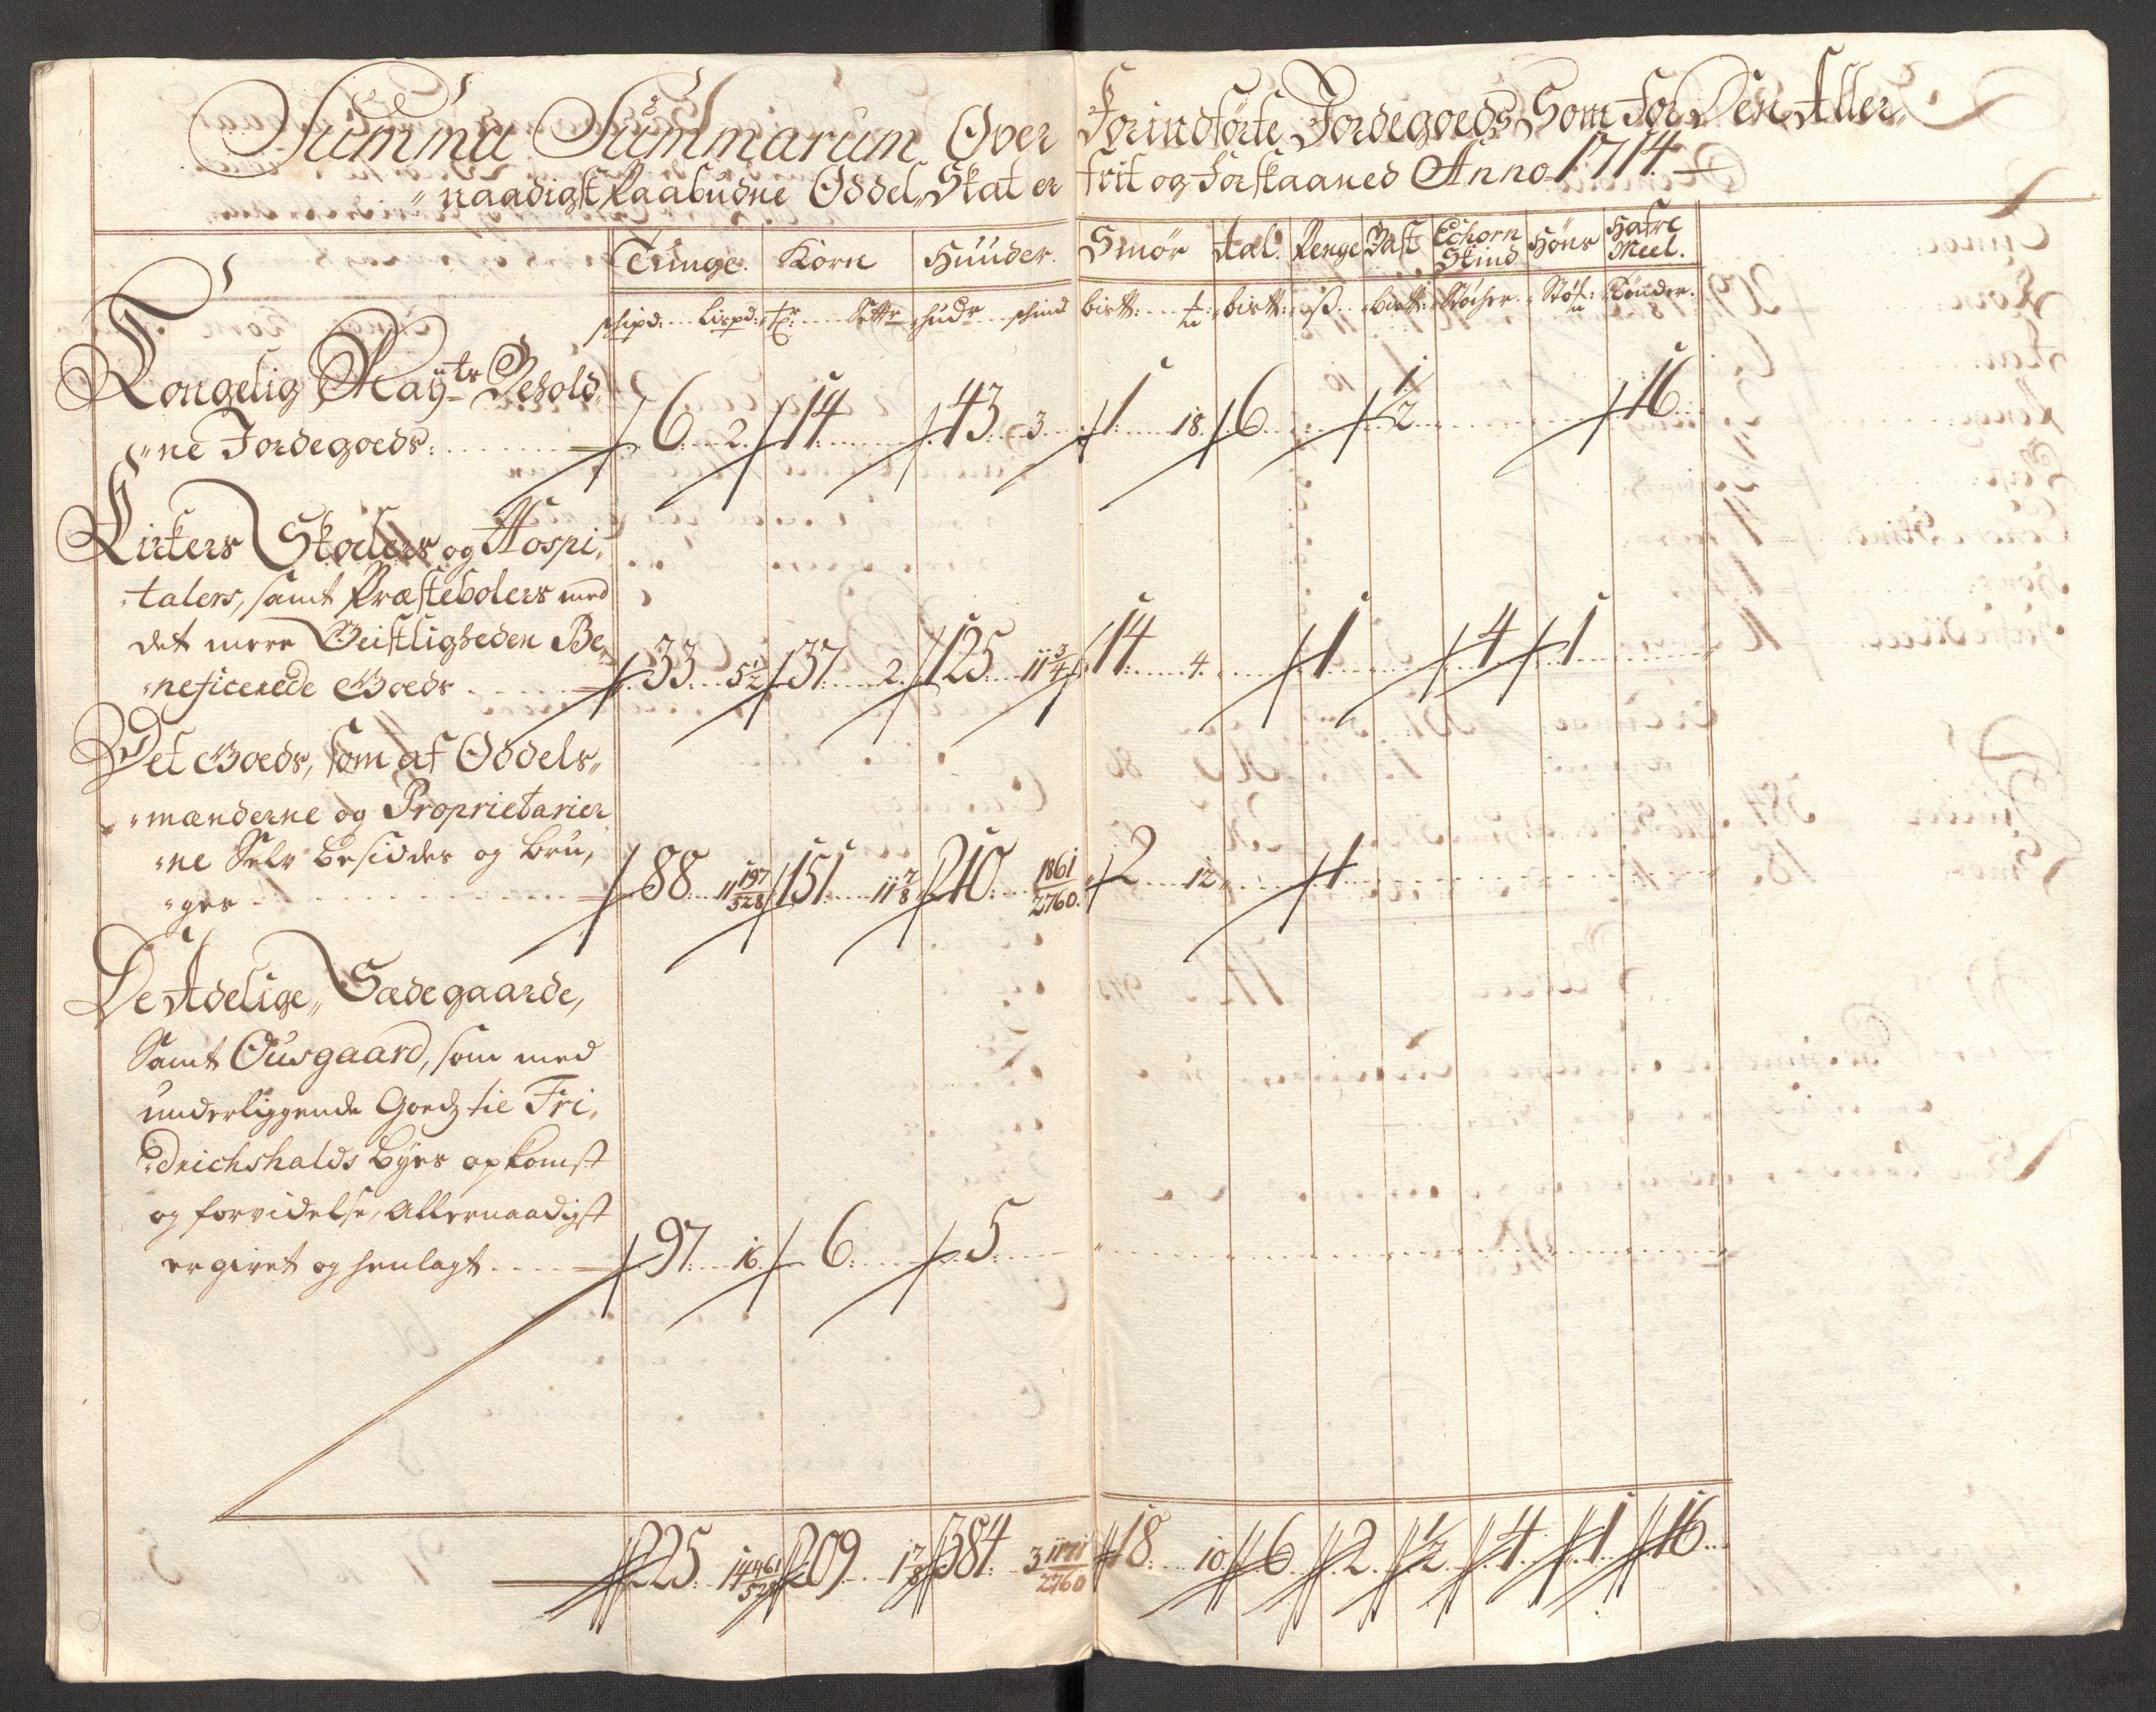 Summa Summarum Over Forindførte Jordegoeds Som For Den Aller„
„naadigst Paabudne Oddel„Skat er frit og Forskaaned Anno 1714.
Tunge. Korn Huuder. Smør Aal. Penge Bast Echorn Skind Høns Hafre Meel.
schipd: Lispd: tr: Settr hudr schind bistt: bistt: ß bistt: Tønder.
Kongelig Mayts Behold„
„ne Jordegoeds: 6 2 14 43 3 1 18 6 1/2 16
Kirkers Skolers og Hospi„
„talers, samt Præstebolers med
det mere Geistligheden Be„
„neficerede Goeds 33 5 1/2 37 2 125 11 3/4 14 4 1 4 1
Det Goeds, som af Oddels„
„mænderne og Proprietarier
„ne Selv besiddes og bru„
„ges 88 11 197/528 151 11 7/8 210 1861/2760 2 12 1
De Adelige„ Sædegaarde,
Samt Ousgaard, som med
underliggende Goedz til Fri„
„drichshalds byes opkomst
og forvidelse, Allernaadigst
er givet og henlagt 97 16 6 5
225 14 461/528 209 1 7/8 384 3 1171/2760 18 10 6 2 1/2 4 1 16